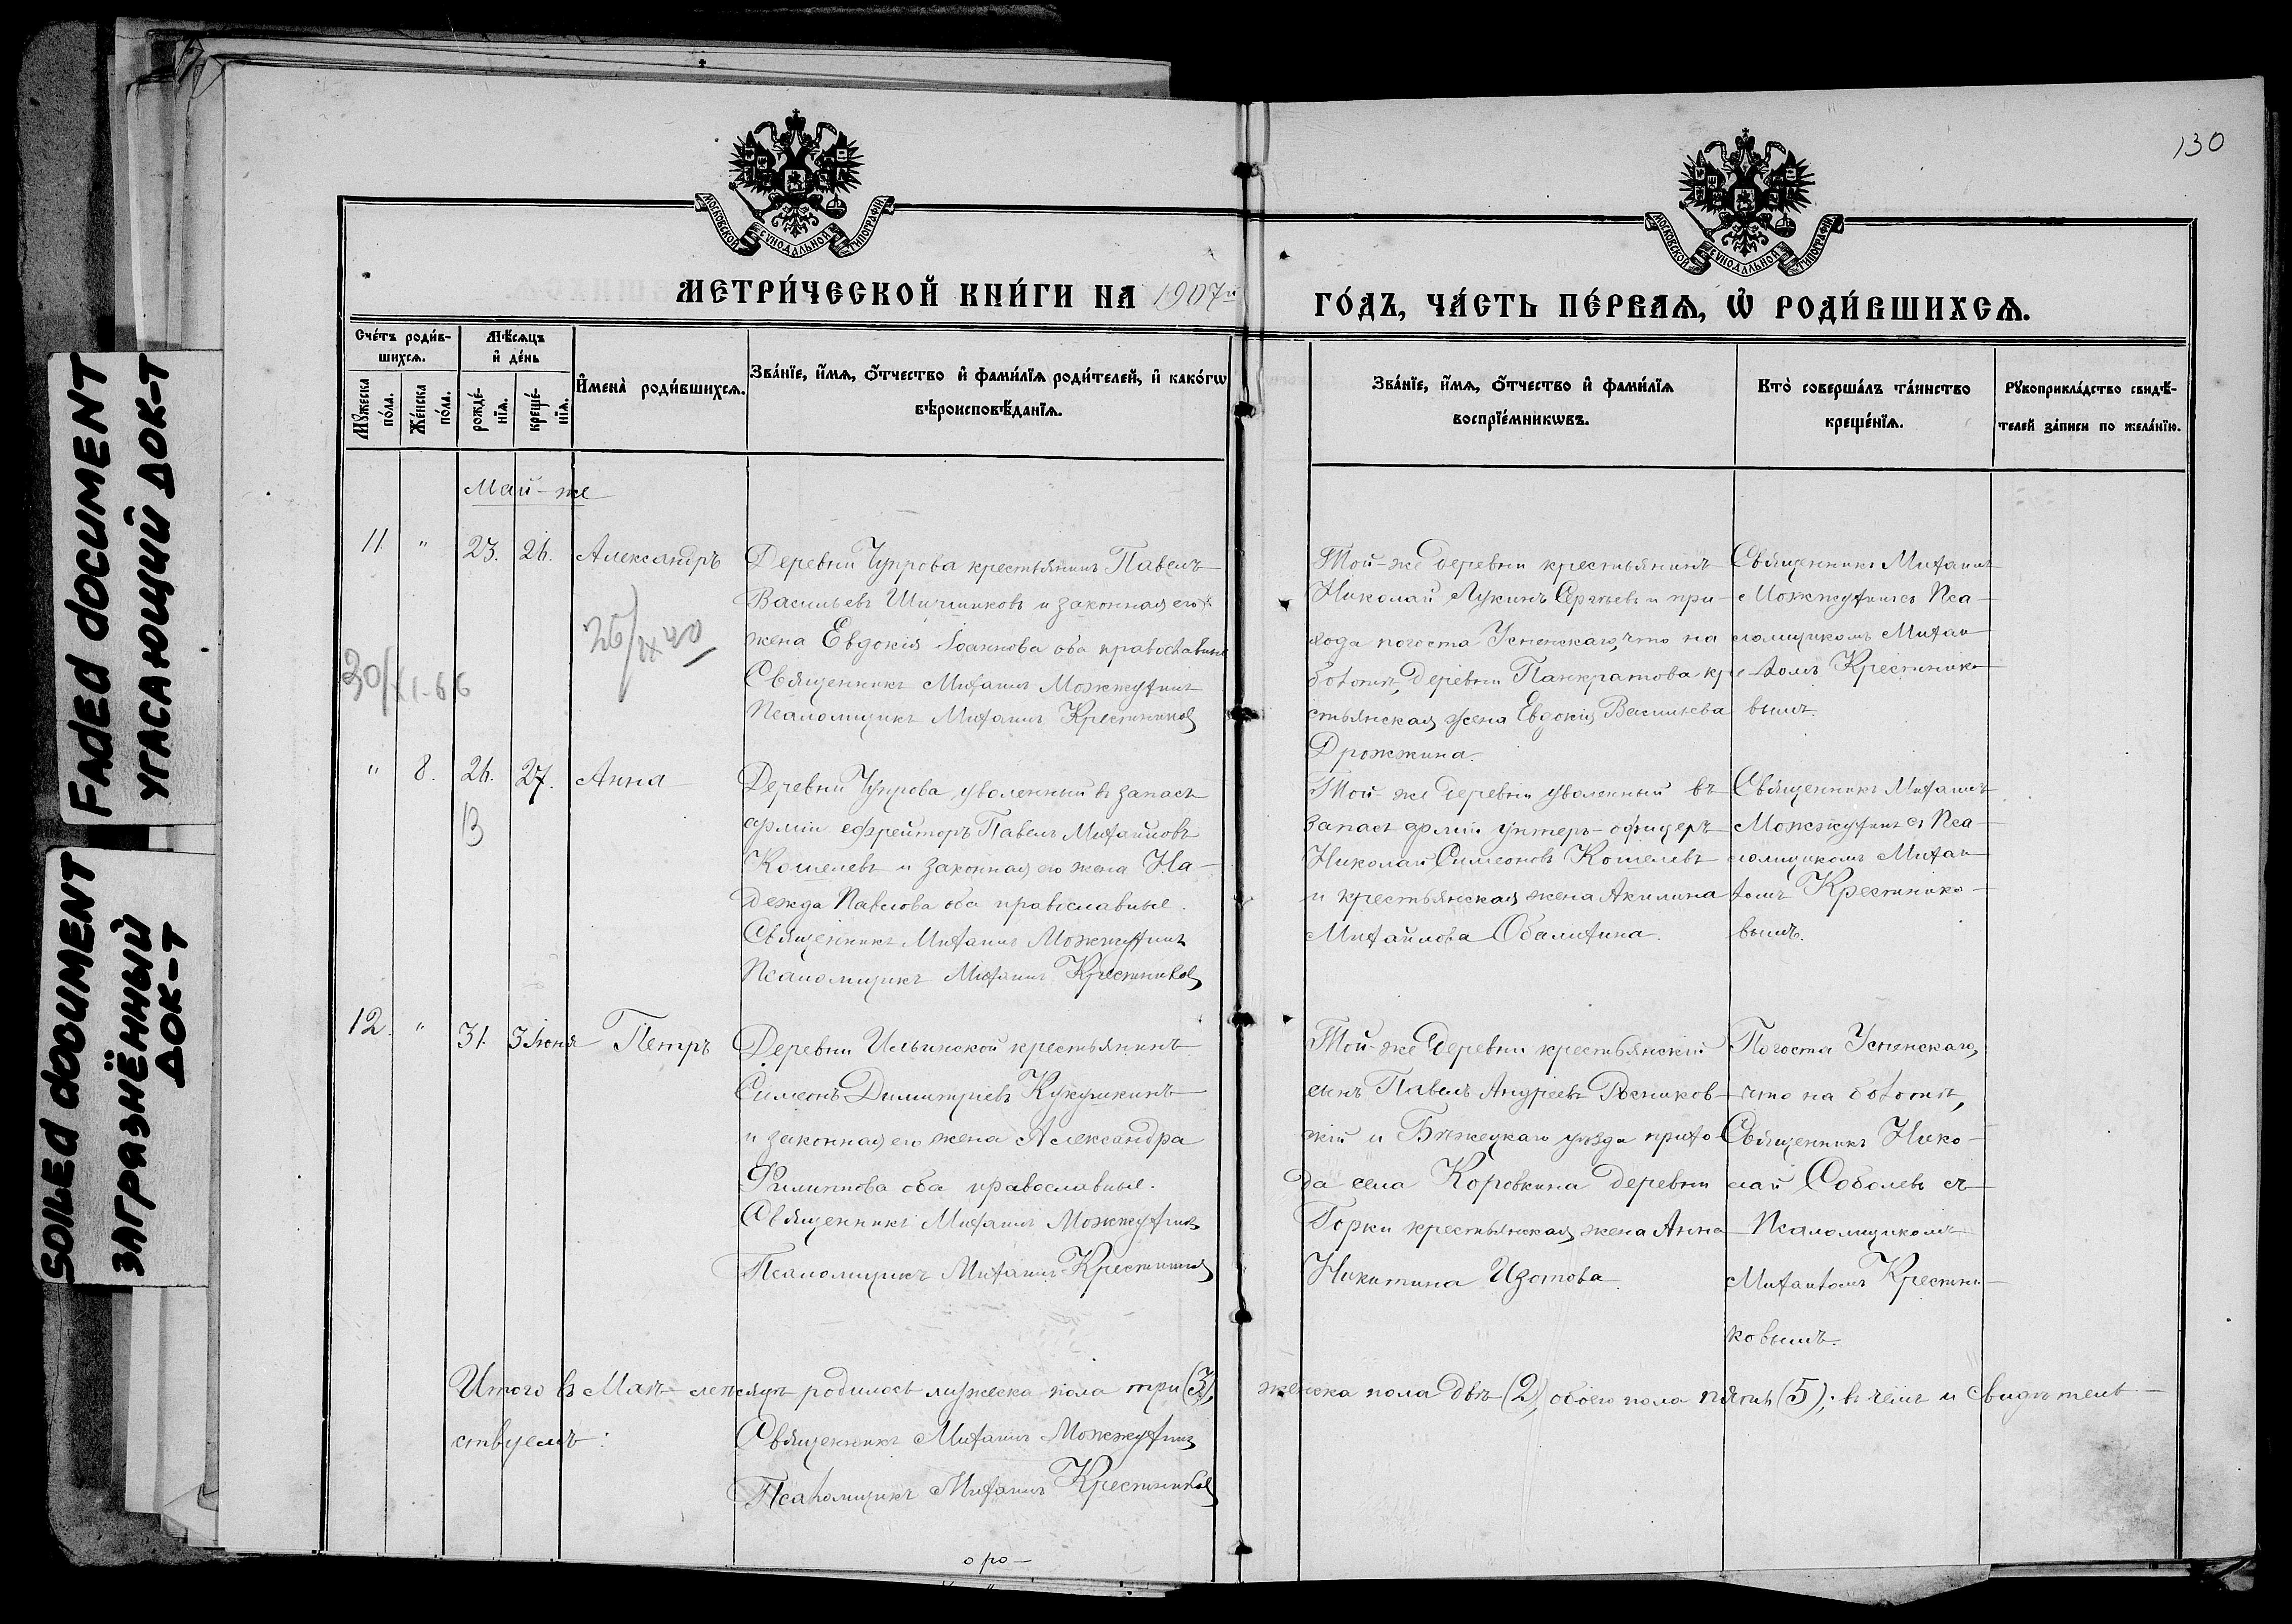 130
МОСКОВСКОЙ СУНОДАЛЬНОЙ ТИПОГРАФІИ
МОСКОВСКОЙ СУНОДАЛЬНОЙ ТИПОГРАФІИ
МЕТРИ́ЧЕСКОЙ КНИ́ГИ НА 1907й
ГО́ДЪ, ЧА́СТЬ ПЕ́РВАѦ, Ѡ҆ РОДИ́ВШИХСѦ.
Сче́тъ роди́в-
шихсѧ.
Мѣ́сѧцъ
и҆ де́нь
Мꙋ́жеска
по́ла.
Же́нска
по́ла.
рожде́-
нїѧ.
креще́-
нїѧ.
И҆мена̀ роди́вшихсѧ.
Зва́нїе, и҆́мѧ, ѻ҆́тчество и҆ фами́лїѧ роди́телей, и҆ како́гѡ
вѣроисповѣ́данїѧ.
Зва́нїе, и҆́мѧ, ѻ҆́тчество и҆ фами́лїѧ
воспрїе́мникѡвъ.
Кто̀ соверша́лъ та́инство
креще́нїѧ.
Рꙋкоприкла́дство свидѣ́-
телей за́писи по жела́нїю.
Май-же
11. " 23. 26. Александръ
Деревни Чупрова крестьянинъ Павелъ
Васильевъ и законная его
жена Евдокія Іоаннова оба православные
Священникъ Михаилъ Можжухинъ
Псаломщикъ Михаилъ Крестниковъ
26/IX 40
30/XI-66
Той-же деревни крестьянинъ
Николай Лукинъ Сергѣевъ и при-
хода погоста Успенскаго, что на
болотѣ, деревни Панкратова кре-
стьянская жена Евдокія Васильева
Дрожжина.
Священникъ Михаилъ
Можжухинъ съ Пса-
ломщикомъ Михаи-
ломъ Крестнико-
вымъ.
" 8. 26. 27. Анна
13
Деревни Чупрова уволенный въ запасъ
арміи ефрейторъ Павелъ Михайловъ
Кошелевъ и законная его жена На-
дежда Павлова оба православные.
Священникъ Михаилъ Можжухинъ
Псаломщикъ Михаилъ Крестниковъ
Той-же деревни уволенный въ
запасъ арміи унтеръ-офицеръ
Николай Симеоновъ Кошелевъ
и крестьянская жена Акилина
Михайлова Обалихина.
Священникъ Михаилъ
Можжухинъ съ Пса-
ломщикомъ Михаи-
ломъ Крестнико-
вымъ.
12. " 31. 3 Іюня Петръ
Деревни Ильинской крестьянинъ
Симеонъ Димитріевъ Кукушкинъ
и законная его жена Александра
Филиппова оба православные.
Священникъ Михаилъ Можжухинъ
Псаломщикъ Михаилъ Крестниковъ
Той-же деревни крестьянскій
сынъ Павелъ Андреевъ
и Бѣжецкаго уѣзда прихо-
да села Коровкина деревни
Горки крестьянская жена Анна
Никитина Изотова.
Погоста Успенскаго,
что на болотѣ,
Священникъ Нико-
лай Соболевъ съ
Псаломщикомъ
Михаиломъ Крестни-
ковымъ.
Итого въ Маѣ мѣсяцѣ родилось мужеска пола три (3), женска пола двѣ (2), обоего пола пять (5); въ чемъ и свидѣтель-
ствуемъ:
Священникъ Михаилъ Можжухинъ
Псаломщикъ Михаилъ Крестниковъ
о ро-
FADED DOCUMENT
УГАСАЮЩИЙ ДОК-Т
SOILED DOCUMENT
ЗАГРЯЗНЁННЫЙ
ДОК-Т